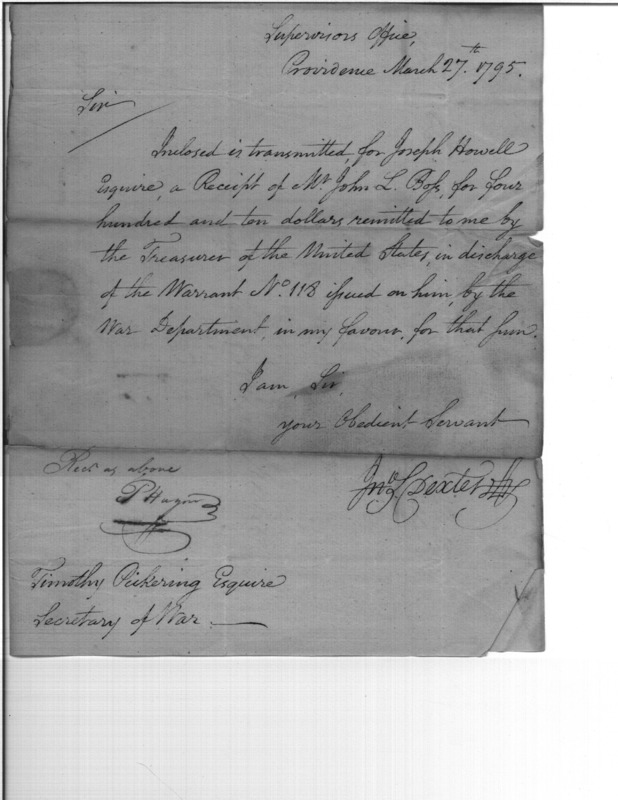 Supervisors Office,
Providence March 27.th 1795.
Sir
Inclosed is transmitted, for Joseph Howell
Esquire, a Receipt of Mr. John L. Boss, for four
hundred and ten dollars remitted to me by
the Treasurer of the United States, in discharge
of the Warrant No. 118 issued on him, by the
War Department, in my favour, for that sum.
I am, Sir,
your Obedient Servant
Jno. S. Dexter
Recd. as above
P Hagner
Timothy Pickering Esquire
Secretary of War.